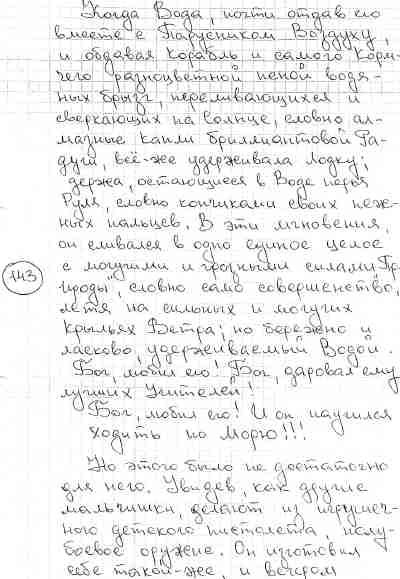 Когда Вода, почти отдав его
вместе с Парусником Воздуху,
и обдавая корабль и самого Корм-
чего разноцветной пеной водя-
ных брызг, переливающихся и
сверкающих на солнце, словно ал-
мазные капли бриллиантовой Ра-
дуги, всё-же удерживала лодку;
держа, остающиеся в Воде перья
Руля, словно кончиками своих неж-
ных пальцев. В эти мгновения,
он сливался в одно единое целое
с могучими и грозными силами При-
роды, словно само совершенство,
летя на сильных и могучих
крыльях Ветра; но бережно и
ласково, удерживаемый Водой.
Бог, любил его! Бог, даровал ему
лучших Учителей!
Бог, любил его! И он научился
ходить по Морю!!!
143
Но этого было не достаточно
для него. Увидев, как другие
мальчишки, делают из игрушеч-
ного детского пистолета, полу-
боевое оружие. Он изготовил
себе такой-же, и вечером